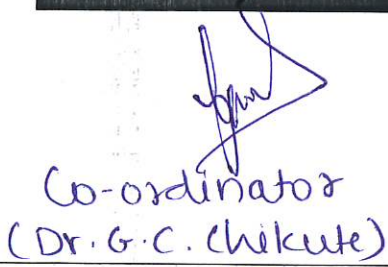 Co-ordinator
(Dr. G. C. Chikute)